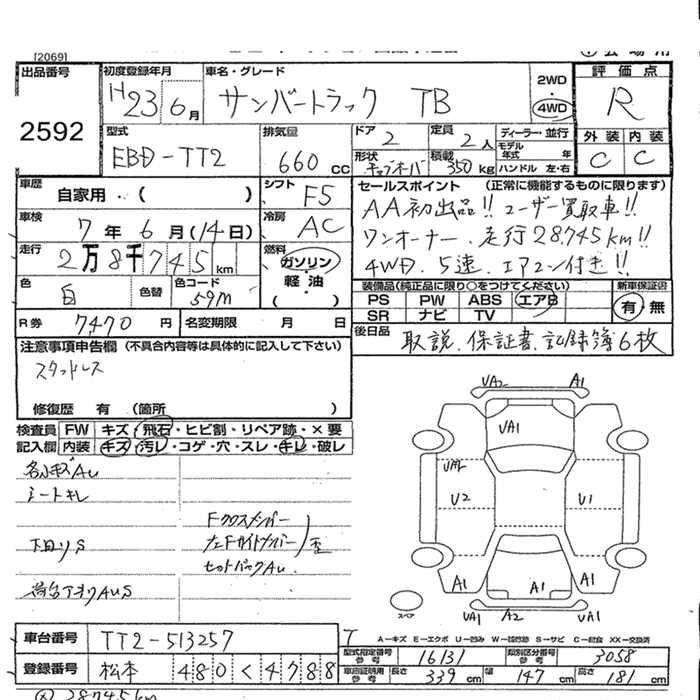 [2069]
出品番号
2592
初度登録年月
H23 6月
車名・グレード
サンバートラック TB
2WD
・
4WD
評価点
R
外装 内装
C C
型式
EBD-TT2
排気量
660 cc
ドア
2
定員
2人
ディーラー・並行
モデル年式 年
ハンドル 左・右
形状
キャブオーバ
積載
350 kg
車歴
自家用・( )
シフト
F5
セールスポイント (正常に機能するものに限ります)
AA初出品!! ユーザー買取車!!
ワンオーナー、走行28.745km!!
4WD、5速、エアコン付き!!
車検
7年6月(14日)
冷房
AC
走行
2万8千745km
燃料
ガソリン・
軽油
・( )
色
白
色替
色コード
59M
装備品(純正品に限り○をつけてください)
新車保証書
PS PW ABS エアB
SR ナビ TV
有・無
R券
7470円
名変期限 月 日
後日品
取説、保証書、記録簿6枚
注意事項申告欄 (不具合内容等は具体的に記入して下さい)
スタッドレス
修復歴 有 (箇所 )
検査員記入欄
FW キズ・飛石・ヒビ割・リペア跡・×要
内装 キズ・汚レ・コゲ・穴・スレ・キレ・破レ
各小キズAU
シートキレ
下回りS
荷台アオリAUS
Fクロスメンバー
左Fサイドメンバー
歪
セットバックAU
UA2 A1
UA1
UA2
U2 U1
A1 A1 A1
UA1 A2 UA1
スペア
A-キズ E-エクボ U-凹み W-補修跡 S-サビ C-腐食 XX-交換済
車台番号
TT2-513257
登録番号
松本 480 く 4788
型式指定番号 参考
16131
類別区分番号 参考
3058
車両証明書 参考
長さ 339cm 幅 147cm 高さ 181cm
28745km